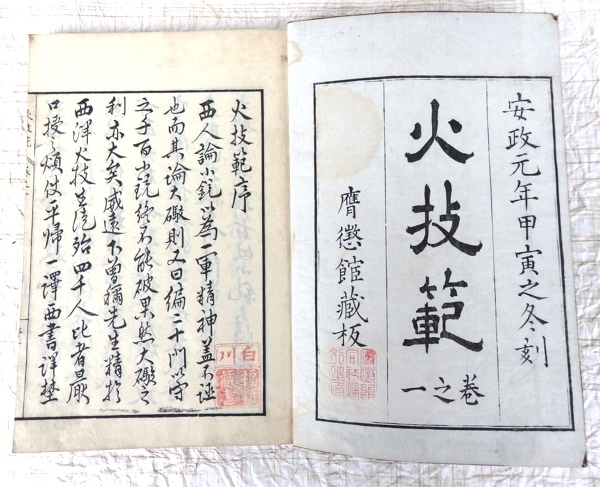 安政元年甲寅之冬刻
火技範
卷之一
膺懲館藏板
火技範序
西人論小銃以為一軍精神蓋不誣
也而其論大礮則又曰編二十門以當
之千百小銃終不能破果然大礮之
利亦大矣威遠下曽禰先生精於
西洋火技生徒殆四千人比者厭
口授之煩使予帰一譯西書譯
白
川